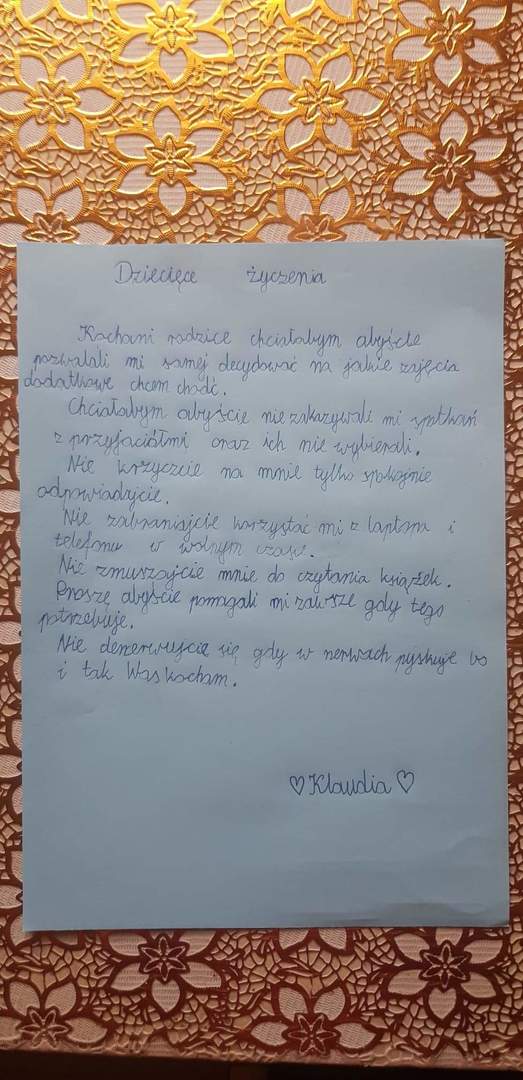 Dziecięce życzenia
Kochani rodzice chciałabym abyście
pozwalali mi samej decydować na jakie zajęcia
dodatkowe chcem chodć.
Chciałabym abyście nie zakazywali mi spotkań
z przyjaciółmi oraz ich nie wybierali.
Nie krzyczcie na mnie tylko spokojnie
odpowiadajcie.
Nie zabraniajcie korzystać mi z laptopa i
telefonu w wolnym czasie.
Nie zmuszajcie mnie do czytania książek.
Proszę abyście pomagali mi zawsze gdy tego
potrzebuje.
Nie denerwujcie się gdy w nerwach pyskuje bo
i tak Was kocham.
♡ Klaudia ♡